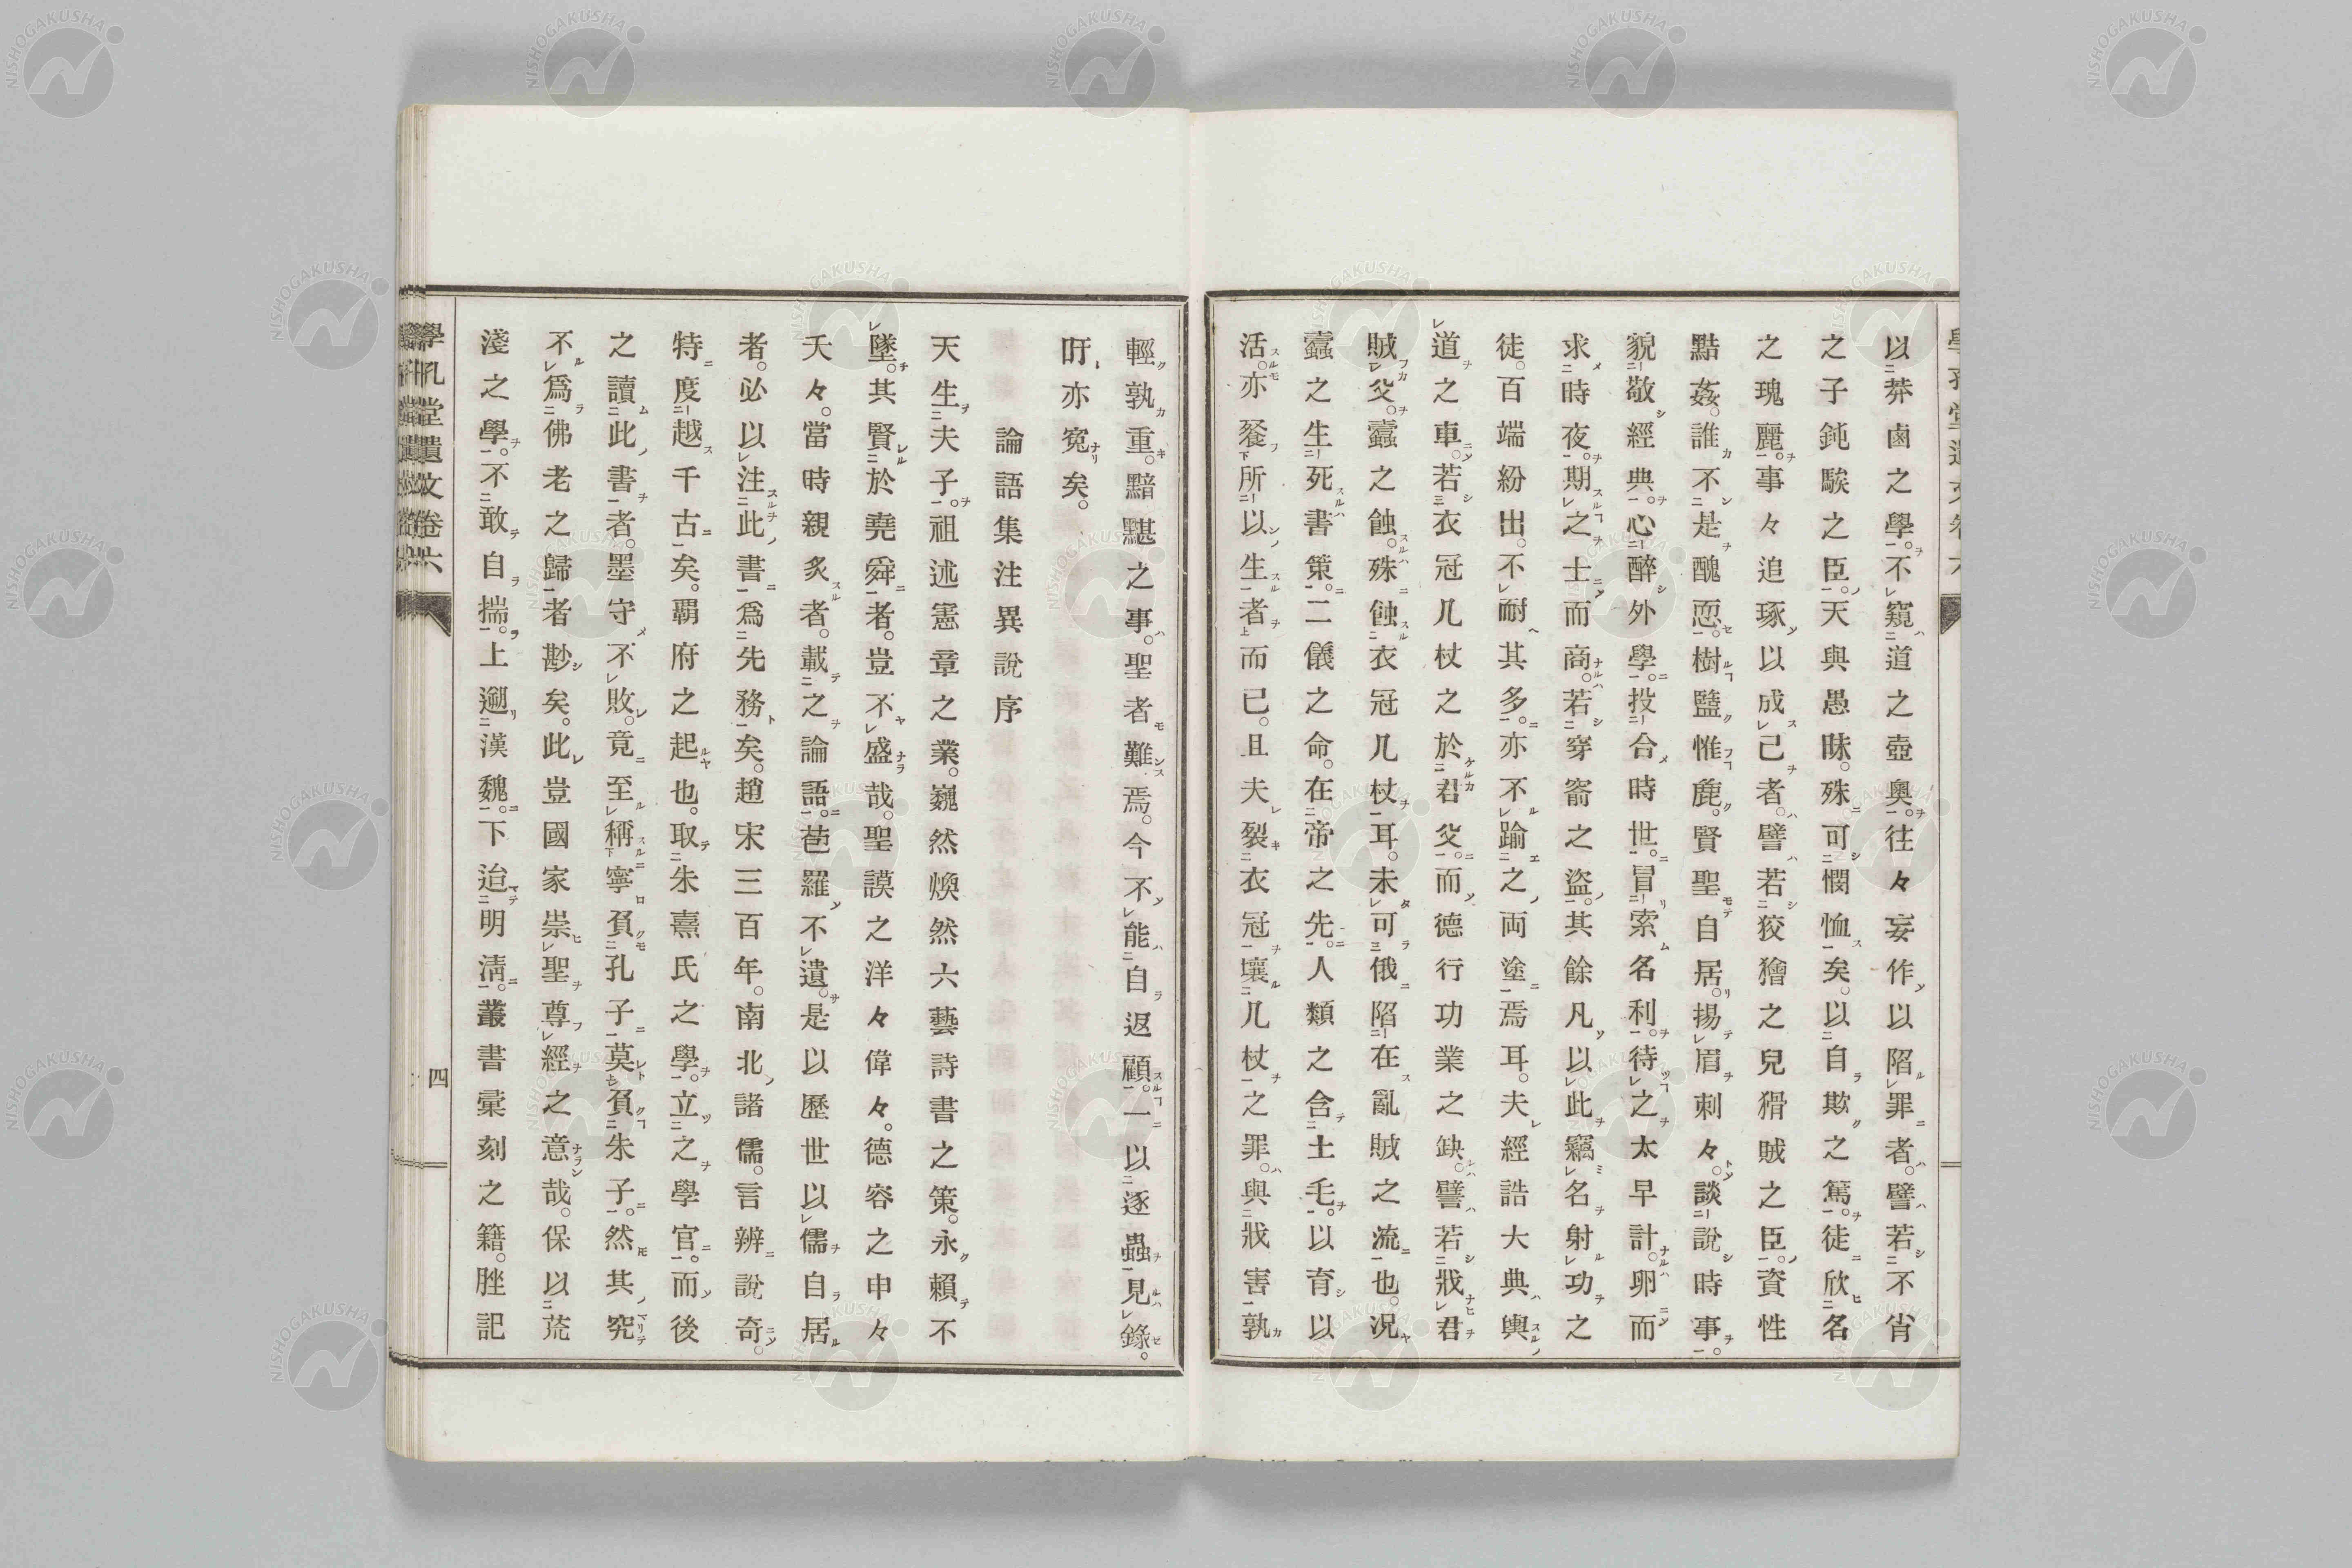 以莽鹵之學。不窺道之壺奧。往々妄作以陷罪者。譬若不肖
之子鈍騃之臣。天與愚昧。殊可憫恤矣。以自欺之篤。徒欣名
之瑰麗。事々追琢以成己者。譬若狡獪之兒猾賊之臣。資性
黠姦。誰不是醜惡。樹鹽惟麁。賢聖自居。揚眉刺々。談說時事。
貌敬經典。心醉外學。投合時世。冒索名利。待之太早計。卵而
求時夜。期之士而商。若穿窬之盜。其餘凡以此竊名射功之
徒。百端紛出。不耐其多。亦不踰之兩塗焉耳。夫經誥大典輿
道之車。若衣冠几杖之於君父。而德行功業之缺。譬若戕君
賊父。蠧之蝕。殊蝕衣冠几杖耳。未可俄陷在亂賊之流也。況
蠧之生死書策。二儀之命。在帝之先。人類之含土毛。以育以
活。亦餮所以生者而已。且夫裂衣冠壞几杖之罪。與戕害孰
輕孰重。黯黮之事。聖者難焉。今不能自返顧。一以逐蟲見錄。
吁亦寃矣。
論語集注異說序
天生夫子。祖述憲章之業。巍然煥然六藝詩書之策。永賴不
墜。其賢於堯舜者。豈不盛哉。聖謨之洋々偉々。德容之申々
夭々。當時親炙者。載之論語。苞羅不遺。是以歷世以儒自居
者。必以注此書爲先務矣。趙宋三百年。南北諸儒。言辨說奇。
特度越千古矣。覇府之起也。取朱熹氏之學。立之學官。而後
之讀此書者。墨守不敗。竟至稱寧負孔子莫負朱子。然其究
不爲佛老之歸者尠矣。此豈國家崇聖尊經之意哉。保以荒
淺之學。不敢自揣。上遡漢魏。下迨明淸。叢書彙刻之籍。脞記
學孔堂遺文卷六
四